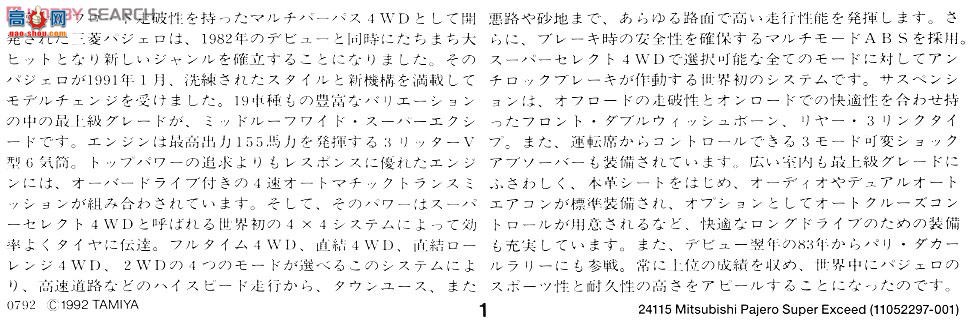 HOBBY SEARCH
走破性を持ったマルチパーパス4WDとして開
発された三菱パジェロは、1982年のデビューと同時にたちまち大
ヒットとなり新しいジャンルを確立することになりました。その
パジェロが1991年1月、洗練されたスタイルと新機構を満載して
モデルチェンジを受けました。19車種もの豊富なバリエーション
の中の最上級グレードが、ミッドルーフワイド・スーパーエクシ
ードです。エンジンは最高出力155馬力を発揮する3リッターV
型6気筒。トップパワーの追求よりもレスポンスに優れたエンジ
ンには、オーバードライブ付きの4速オートマチックトランスミ
ッションが組み合わされています。そして、そのパワーはスーパ
ーセレクト4WDと呼ばれる世界初の4×4システムによって効
率よくタイヤに伝達。フルタイム4WD、直結4WD、直結ロー
レンジ4WD、2WDの4つのモードが選べるこのシステムによ
り、高速道路などのハイスピード走行から、タウンユース、また
悪路や砂地まで、あらゆる路面で高い走行性能を発揮します。さ
らに、ブレーキ時の安全性を確保するマルチモードABSを採用。
スーパーセレクト4WDで選択可能な全てのモードに対してアン
チロックブレーキが作動する世界初のシステムです。サスペンシ
ョンは、オフロードの走破性とオンロードでの快適性を合わせ持
ったフロント・ダブルウィッシュボーン、リヤー・3リンクタイ
プ。また、運転席からコントロールできる3モード可変ショック
アブソーバーも装備されています。広い室内も最上級グレードに
ふさわしく、本革シートをはじめ、オーディオやデュアルオート
エアコンが標準装備され、オプションとしてオートクルーズコン
トロールが用意されるなど、快適なロングドライブのための装備
も充実しています。また、デビュー翌年の83年からパリ・ダカー
ルラリーにも参戦。常に上位の成績を収め、世界中にパジェロの
スポーツ性と耐久性の高さをアピールすることになったのです。
0792 ©1992 TAMIYA
1
24115 Mitsubishi Pajero Super Exceed (11052297-001)